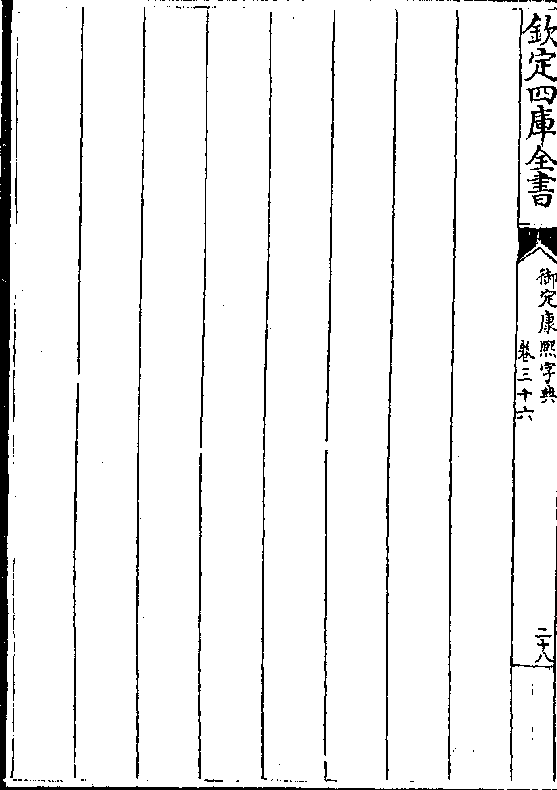 欽定四庫全書
御定康熙字典
卷三十六
二十八